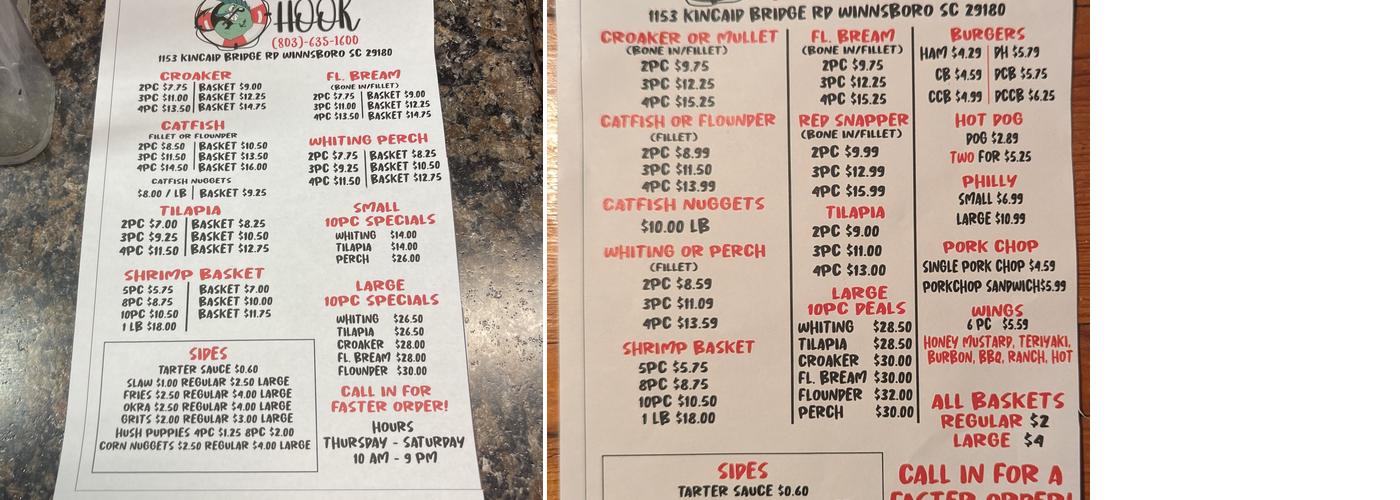 HOOK
(803)-635-1600
1153 KINCAID BRIDGE RD WINNSBORO SC 29180
CROAKER
2PC $7.75 BASKET $9.00
3PC $11.00 BASKET $12.25
4PC $13.50 BASKET $14.75
CATFISH
FILLET OR FLOUNDER
2PC $8.50 BASKET $10.50
3PC $11.50 BASKET $13.50
4PC $14.50 BASKET $16.00
CATFISH NUGGETS
$8.00 / LB BASKET $9.25
TILAPIA
2PC $7.00 BASKET $8.25
3PC $9.25 BASKET $10.50
4PC $11.50 BASKET $12.75
SHRIMP BASKET
5PC $5.75 BASKET $7.00
8PC $8.75 BASKET $10.00
10PC $10.50 BASKET $11.75
1 LB $18.00
SIDES
TARTER SAUCE $0.60
SLAW $1.00 REGULAR $2.50 LARGE
FRIES $2.50 REGULAR $4.00 LARGE
OKRA $2.50 REGULAR $4.00 LARGE
GRITS $2.00 REGULAR $3.00 LARGE
HUSH PUPPIES 4PC $1.25 8PC $2.00
CORN NUGGETS $2.50 REGULAR $4.00 LARGE
FL. BREAM
(BONE IN/FILLET)
2PC $7.75 BASKET $9.00
3PC $11.00 BASKET $12.25
4PC $13.50 BASKET $14.75
WHITING PERCH
2PC $7.75 BASKET $8.25
3PC $9.25 BASKET $10.50
4PC $11.50 BASKET $12.75
SMALL
10PC SPECIALS
WHITING $14.00
TILAPIA $14.00
PERCH $26.00
LARGE
10PC SPECIALS
WHITING $26.50
TILAPIA $26.50
CROAKER $28.00
FL. BREAM $28.00
FLOUNDER $30.00
CALL IN FOR
FASTER ORDER!
HOURS
THURSDAY - SATURDAY
10 AM - 9 PM
1153 KINCAID BRIDGE RD WINNSBORO SC 29180
CROAKER OR MULLET
(BONE IN/FILLET)
2PC $9.75
3PC $12.25
4PC $15.25
CATFISH OR FLOUNDER
(FILLET)
2PC $8.99
3PC $11.50
4PC $13.99
CATFISH NUGGETS
$10.00 LB
WHITING OR PERCH
(FILLET)
2PC $8.59
3PC $11.09
4PC $13.59
SHRIMP BASKET
5PC $5.75
8PC $8.75
10PC $10.50
1 LB $18.00
FL. BREAM
(BONE IN/FILLET)
2PC $9.75
3PC $12.25
4PC $15.25
RED SNAPPER
(BONE IN/FILLET)
2PC $9.99
3PC $12.99
4PC $15.99
TILAPIA
2PC $9.00
3PC $11.00
4PC $13.00
LARGE
10PC DEALS
WHITING $28.50
TILAPIA $28.50
CROAKER $30.00
FL. BREAM $30.00
FLOUNDER $32.00
PERCH $30.00
BURGERS
HAM $4.29 DH $5.79
CB $4.59 DCB $5.75
CCB $4.99 DCCB $6.25
HOT DOG
DOG $2.89
TWO FOR $5.25
PHILLY
SMALL $6.99
LARGE $10.99
PORK CHOP
SINGLE PORK CHOP $4.59
PORKCHOP SANDWICH$5.99
WINGS
6 PC $5.59
HONEY MUSTARD, TERIYAKI,
BURBON, BBQ, RANCH, HOT
ALL BASKETS
REGULAR $2
LARGE $4
SIDES
TARTER SAUCE $0.60
CALL IN FOR A
FASTER ORDER!